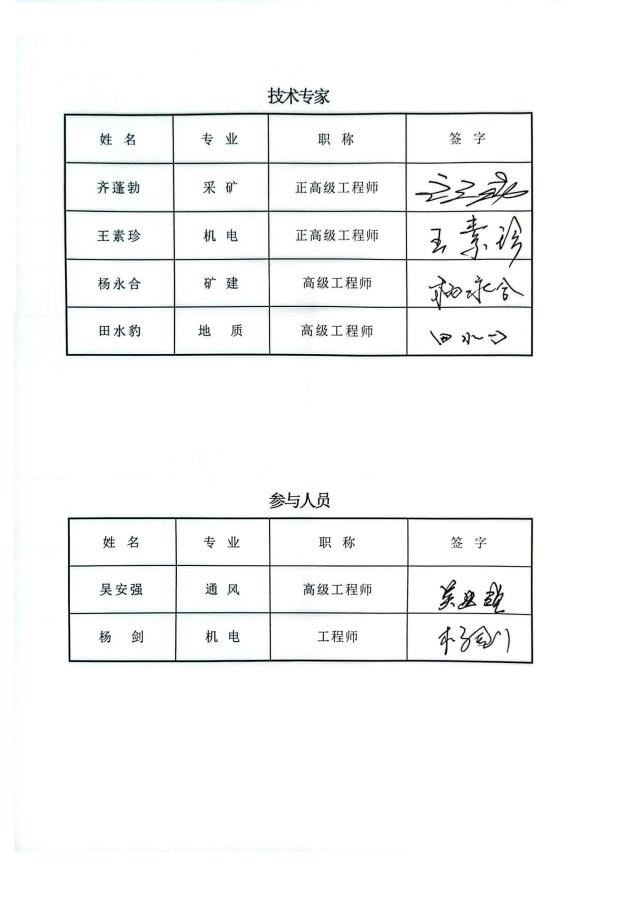 技术专家
姓 名 专 业 职 称 签 字
齐蓬勃 采 矿 正高级工程师
王素珍 机 电 正高级工程师 王素珍
杨永合 矿 建 高级工程师 杨永合
田水豹 地 质 高级工程师
参与人员
姓 名 专 业 职 称 签 字
吴安强 通 风 高级工程师 吴安强
杨 剑 机 电 工程师 杨剑